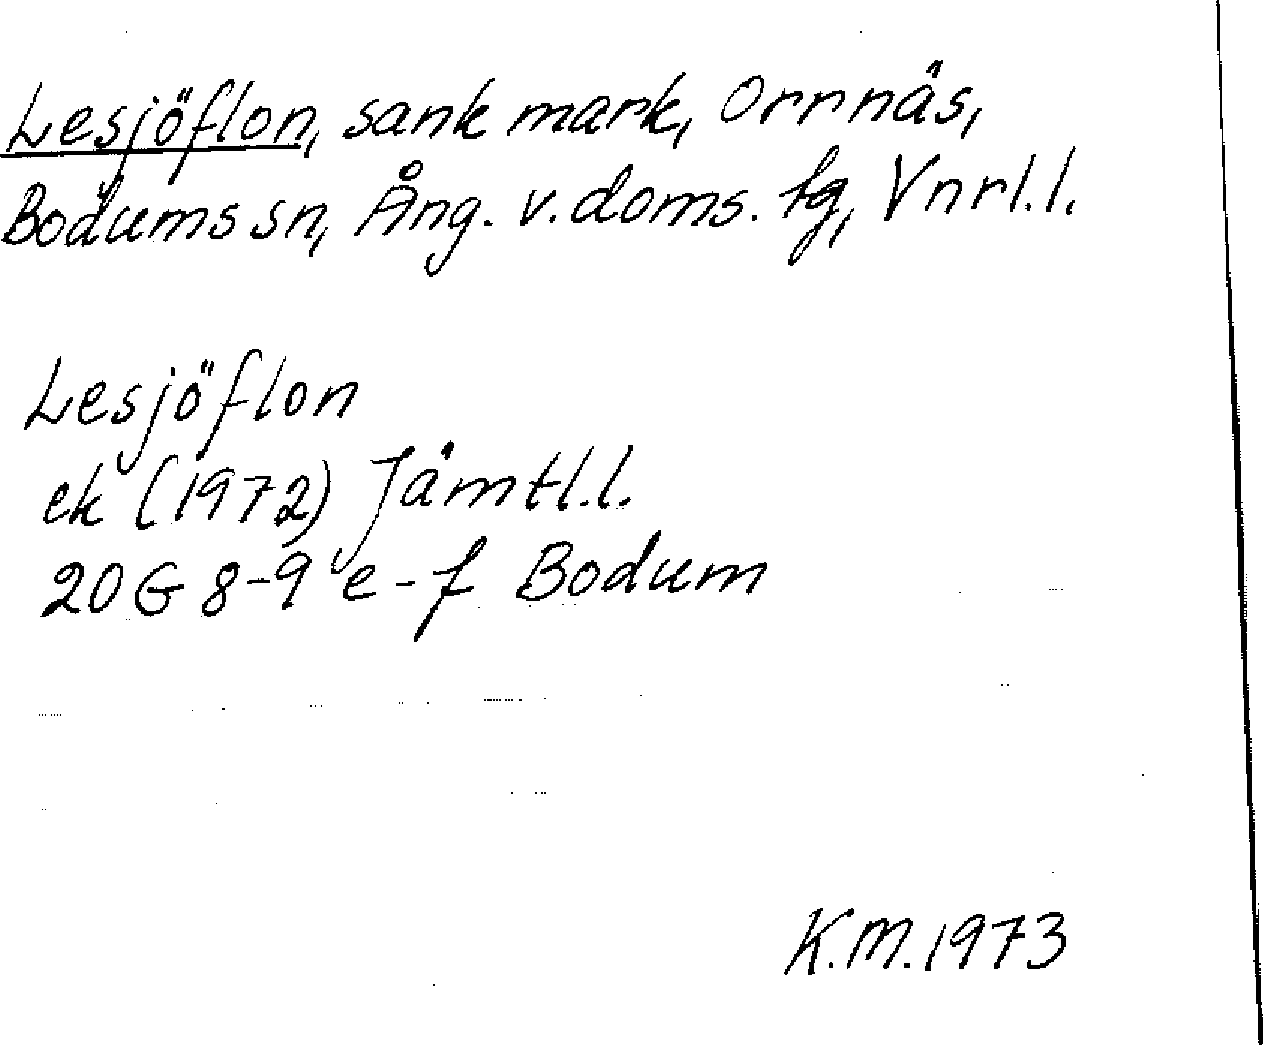 Lesjöflon, sank mark, Orrnäs,
Bodums sn, Ång. v. doms. tg, Vnrl.l.
Lesjöflon
ek (1972) Jämtl.l.
20 G 8-9 e-f Bodum
K.M. 1973